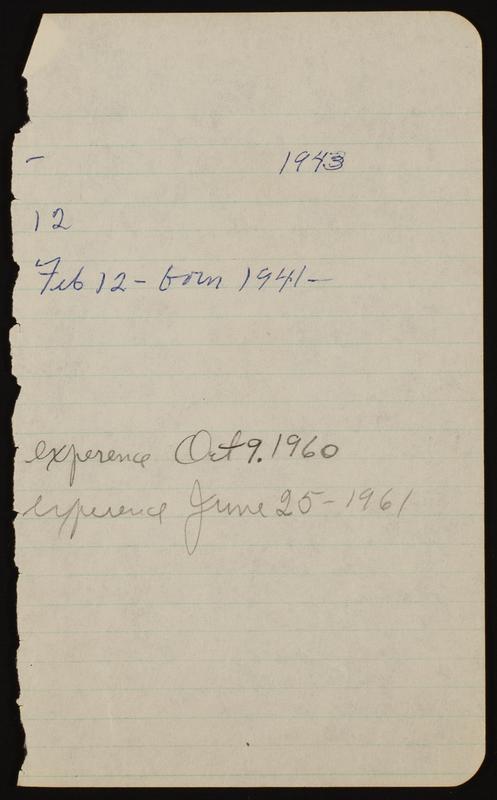 - 1943
12
Feb 12 - born 1941 -
experence Oct 9. 1960
experence June 25 - 1961